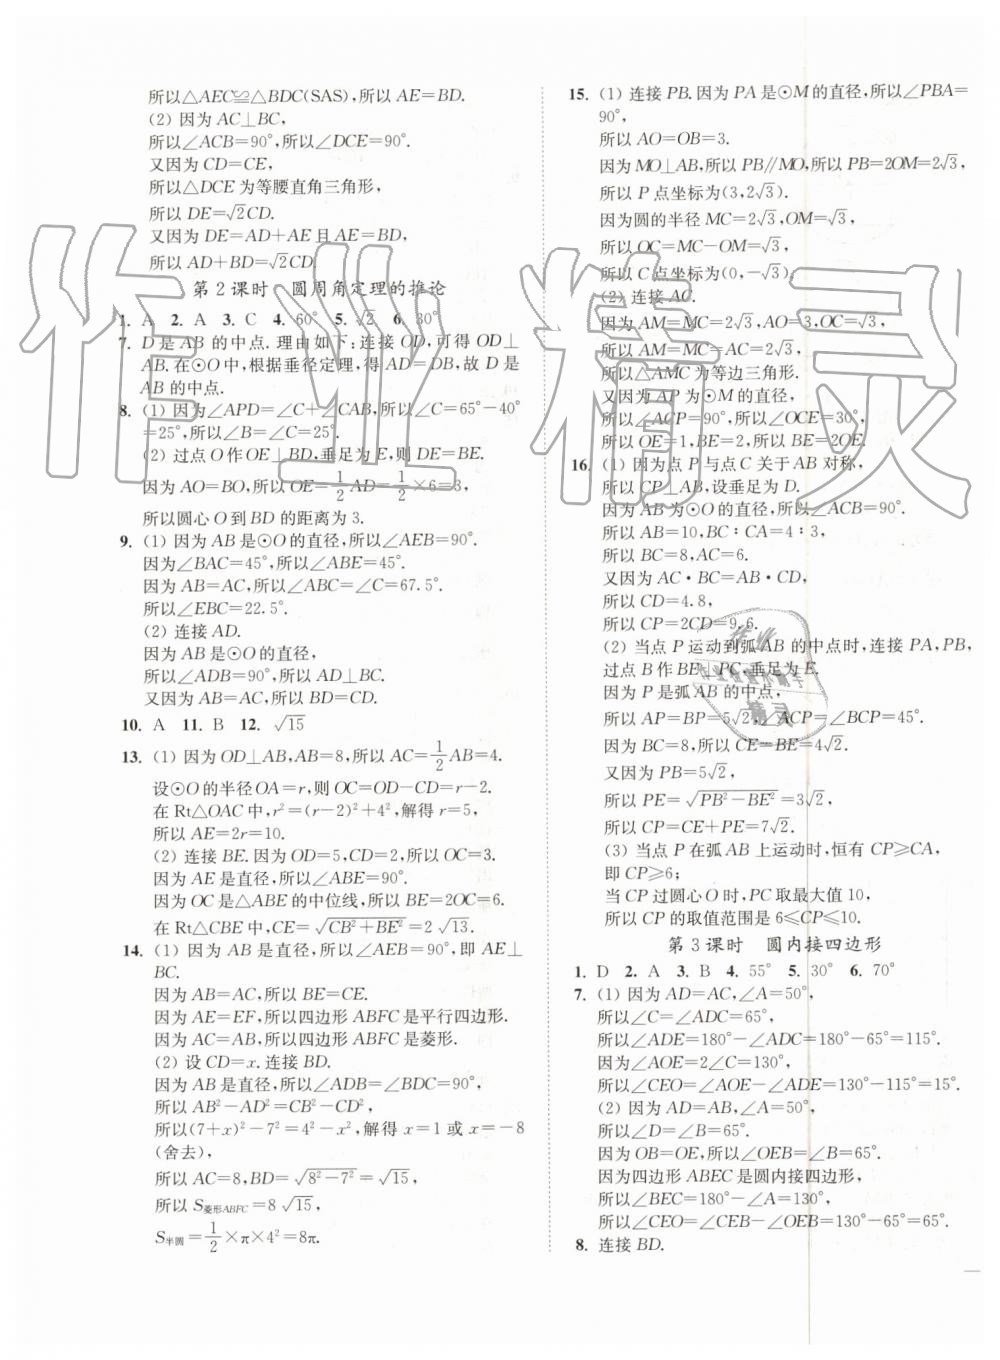 所以△AEC≌△BDC(SAS),所以 AE=BD.
(2) 因为 AC⊥BC,
所以∠ACB=90°,所以∠DCE=90°.
又因为 CD=CE,
所以△DCE 为等腰直角三角形,
所以 DE=√2CD.
又因为 DE=AD+AE 且 AE=BD,
所以 AD+BD=√2CD.
第 2 课时 圆周角定理的推论
1. A 2. A 3. C 4. 60° 5. √2 6. 30°
7. D 是 AB 的中点. 理由如下:连接 OD,可得 OD⊥
AB. 在⊙O 中,根据垂径定理,得 AD=DB,故 D 是
AB 的中点.
8. (1) 因为∠APD=∠C+∠CAB,所以∠C=65°-40°
=25°,所以∠B=∠C=25°.
(2) 过点 O 作 OE⊥BD,垂足为 E,则 DE=BE.
因为 AO=BO,所以 OE=1/2 AD=1/2×6=3,
所以圆心 O 到 BD 的距离为 3.
9. (1) 因为 AB 是⊙O 的直径,所以∠AEB=90°.
因为∠BAC=45°,所以∠ABE=45°.
因为 AB=AC,所以∠ABC=∠C=67.5°.
所以∠EBC=22.5°.
(2) 连接 AD.
因为 AB 是⊙O 的直径,
所以∠ADB=90°,所以 AD⊥BC.
又因为 AB=AC,所以 BD=CD.
10. A 11. B 12. √15
13. (1) 因为 OD⊥AB,AB=8,所以 AC=1/2 AB=4.
设⊙O 的半径 OA=r,则 OC=OD-CD=r-2.
在 Rt△OAC 中,r²=(r-2)²+4²,解得 r=5,
所以 AE=2r=10.
(2) 连接 BE. 因为 OD=5,CD=2,所以 OC=3.
因为 AE 是直径,所以∠ABE=90°.
因为 OC 是△ABE 的中位线,所以 BE=2OC=6.
在 Rt△CBE 中,CE=√(CB²+BE²)=2√13.
14. (1) 因为 AB 是直径,所以∠AEB=90°,即 AE⊥
BC.
因为 AB=AC,所以 BE=CE.
因为 AE=EF,所以四边形 ABFC 是平行四边形.
因为 AC=AB,所以四边形 ABFC 是菱形.
(2) 设 CD=x. 连接 BD.
因为 AB 是直径,所以∠ADB=∠BDC=90°,
所以 AB²-AD²=CB²-CD²,
所以(7+x)²-7²=4²-x²,解得 x=1 或 x=-8
(舍去),
所以 AC=8,BD=√(8²-7²)=√15,
所以 S菱形ABFC=8√15,
S半圆=1/2×π×4²=8π.
15. (1) 连接 PB. 因为 PA 是⊙M 的直径,所以∠PBA=
90°,
所以 AO=OB=3.
因为 MO⊥AB,所以 PB∥MO,所以 PB=2OM=2√3,
所以 P 点坐标为(3,2√3).
因为圆的半径 MC=2√3,OM=√3,
所以 OC=MC-OM=√3,
所以 C 点坐标为(0,-√3).
(2) 连接 AC.
因为 AM=MC=2√3,AO=3,OC=√3,
所以 AM=MC=AC=2√3,
所以△AMC 为等边三角形.
又因为 AP 为⊙M 的直径,
所以∠ACP=90°,所以∠OCE=30°,
所以 OE=1,BE=2,所以 BE=2OE.
16. (1) 因为点 P 与点 C 关于 AB 对称,
所以 CP⊥AB,设垂足为 D.
因为 AB 为⊙O 的直径,所以∠ACB=90°.
所以 AB=10,BC∶CA=4∶3,
所以 BC=8,AC=6.
又因为 AC·BC=AB·CD,
所以 CD=4.8,
所以 CP=2CD=9.6.
(2) 当点 P 运动到弧 AB 的中点时,连接 PA,PB,
过点 B 作 BE⊥PC,垂足为 E.
因为 P 是弧 AB 的中点,
所以 AP=BP=5√2,∠ACP=∠BCP=45°.
因为 BC=8,所以 CE=BE=4√2.
又因为 PB=5√2,
所以 PE=√(PB²-BE²)=3√2,
所以 CP=CE+PE=7√2.
(3) 当点 P 在弧 AB 上运动时,恒有 CP≥CA,
即 CP≥6;
当 CP 过圆心 O 时,PC 取最大值 10,
所以 CP 的取值范围是 6≤CP≤10.
第 3 课时 圆内接四边形
1. D 2. A 3. B 4. 55° 5. 30° 6. 70°
7. (1) 因为 AD=AC,∠A=50°,
所以∠C=∠ADC=65°,
所以∠ADE=180°-∠ADC=180°-65°=115°.
因为∠AOE=2∠C=130°,
所以∠CEO=∠AOE-∠ADE=130°-115°=15°.
(2) 因为 AD=AB,∠A=50°,
所以∠D=∠B=65°.
因为 OB=OE,所以∠OEB=∠B=65°.
因为四边形 ABEC 是圆内接四边形,
所以∠BEC=180°-∠A=130°,
所以∠CEO=∠CEB-∠OEB=130°-65°=65°.
8. 连接 BD.
作业精灵
作业
精灵